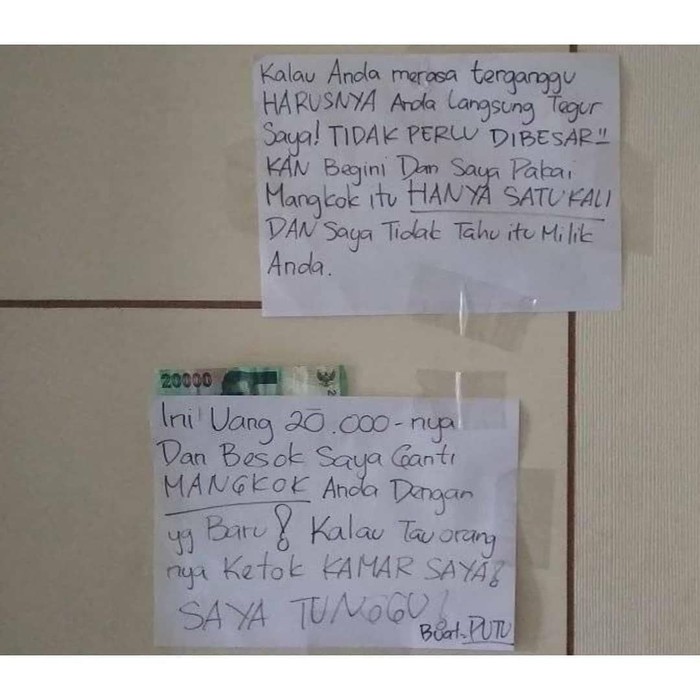 Kalau Anda merasa terganggu
HARUSNYA Anda Langsung Tegur
Saya! TIDAK PERLU DIBESAR!!
KAN Begini Dan Saya Pakai
Mangkok itu HANYA SATU KALI
DAN Saya Tidak Tahu itu Milik
Anda.
20000
2
Ini Uang 20.000-nya
Dan Besok Saya Ganti
MANGKOK Anda Dengan
yg Baru! Kalau Tau orang
nya Ketok KAMAR SAYA!
SAYA TUNGGU!
Buat. PUTU